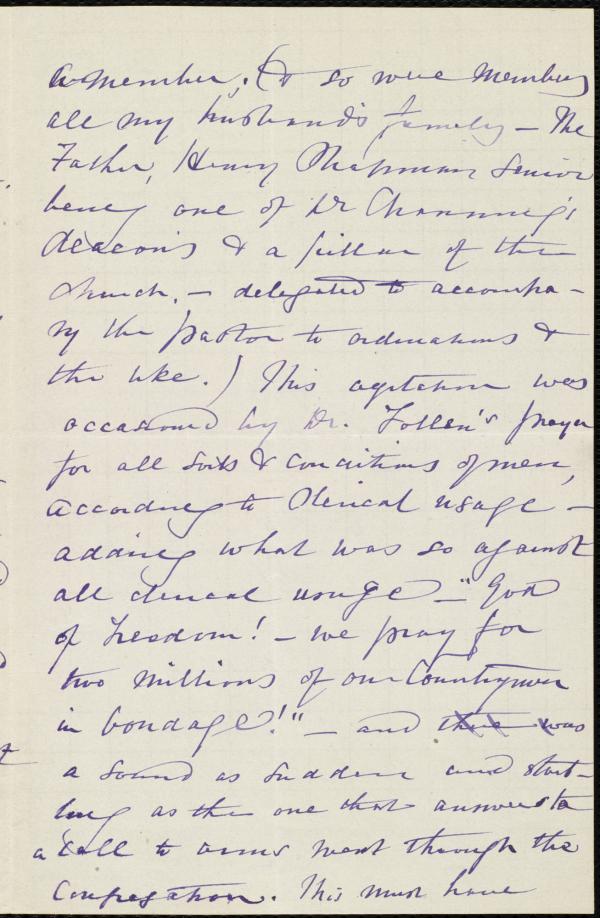 a member; (& so were members
all my husband's family – the
Father, Henry Chapman Senior
being one of Dr Channing's
deacons & a pillar of the
church, – delegated to accompa-
ny the pastor to ordinations &
the like.) This agitation was
occasioned by Dr. Follen's prayer
for all sorts & conditions of men,
according to clerical usage –
adding what was so against
all clerical usage – "God
of Freedom! – we pray for
two millions of our Countrymen
in bondage!" – and there was
a sound as sudden and start-
ling as the one that answers to
a call to arms went through the
Congregation. This must have